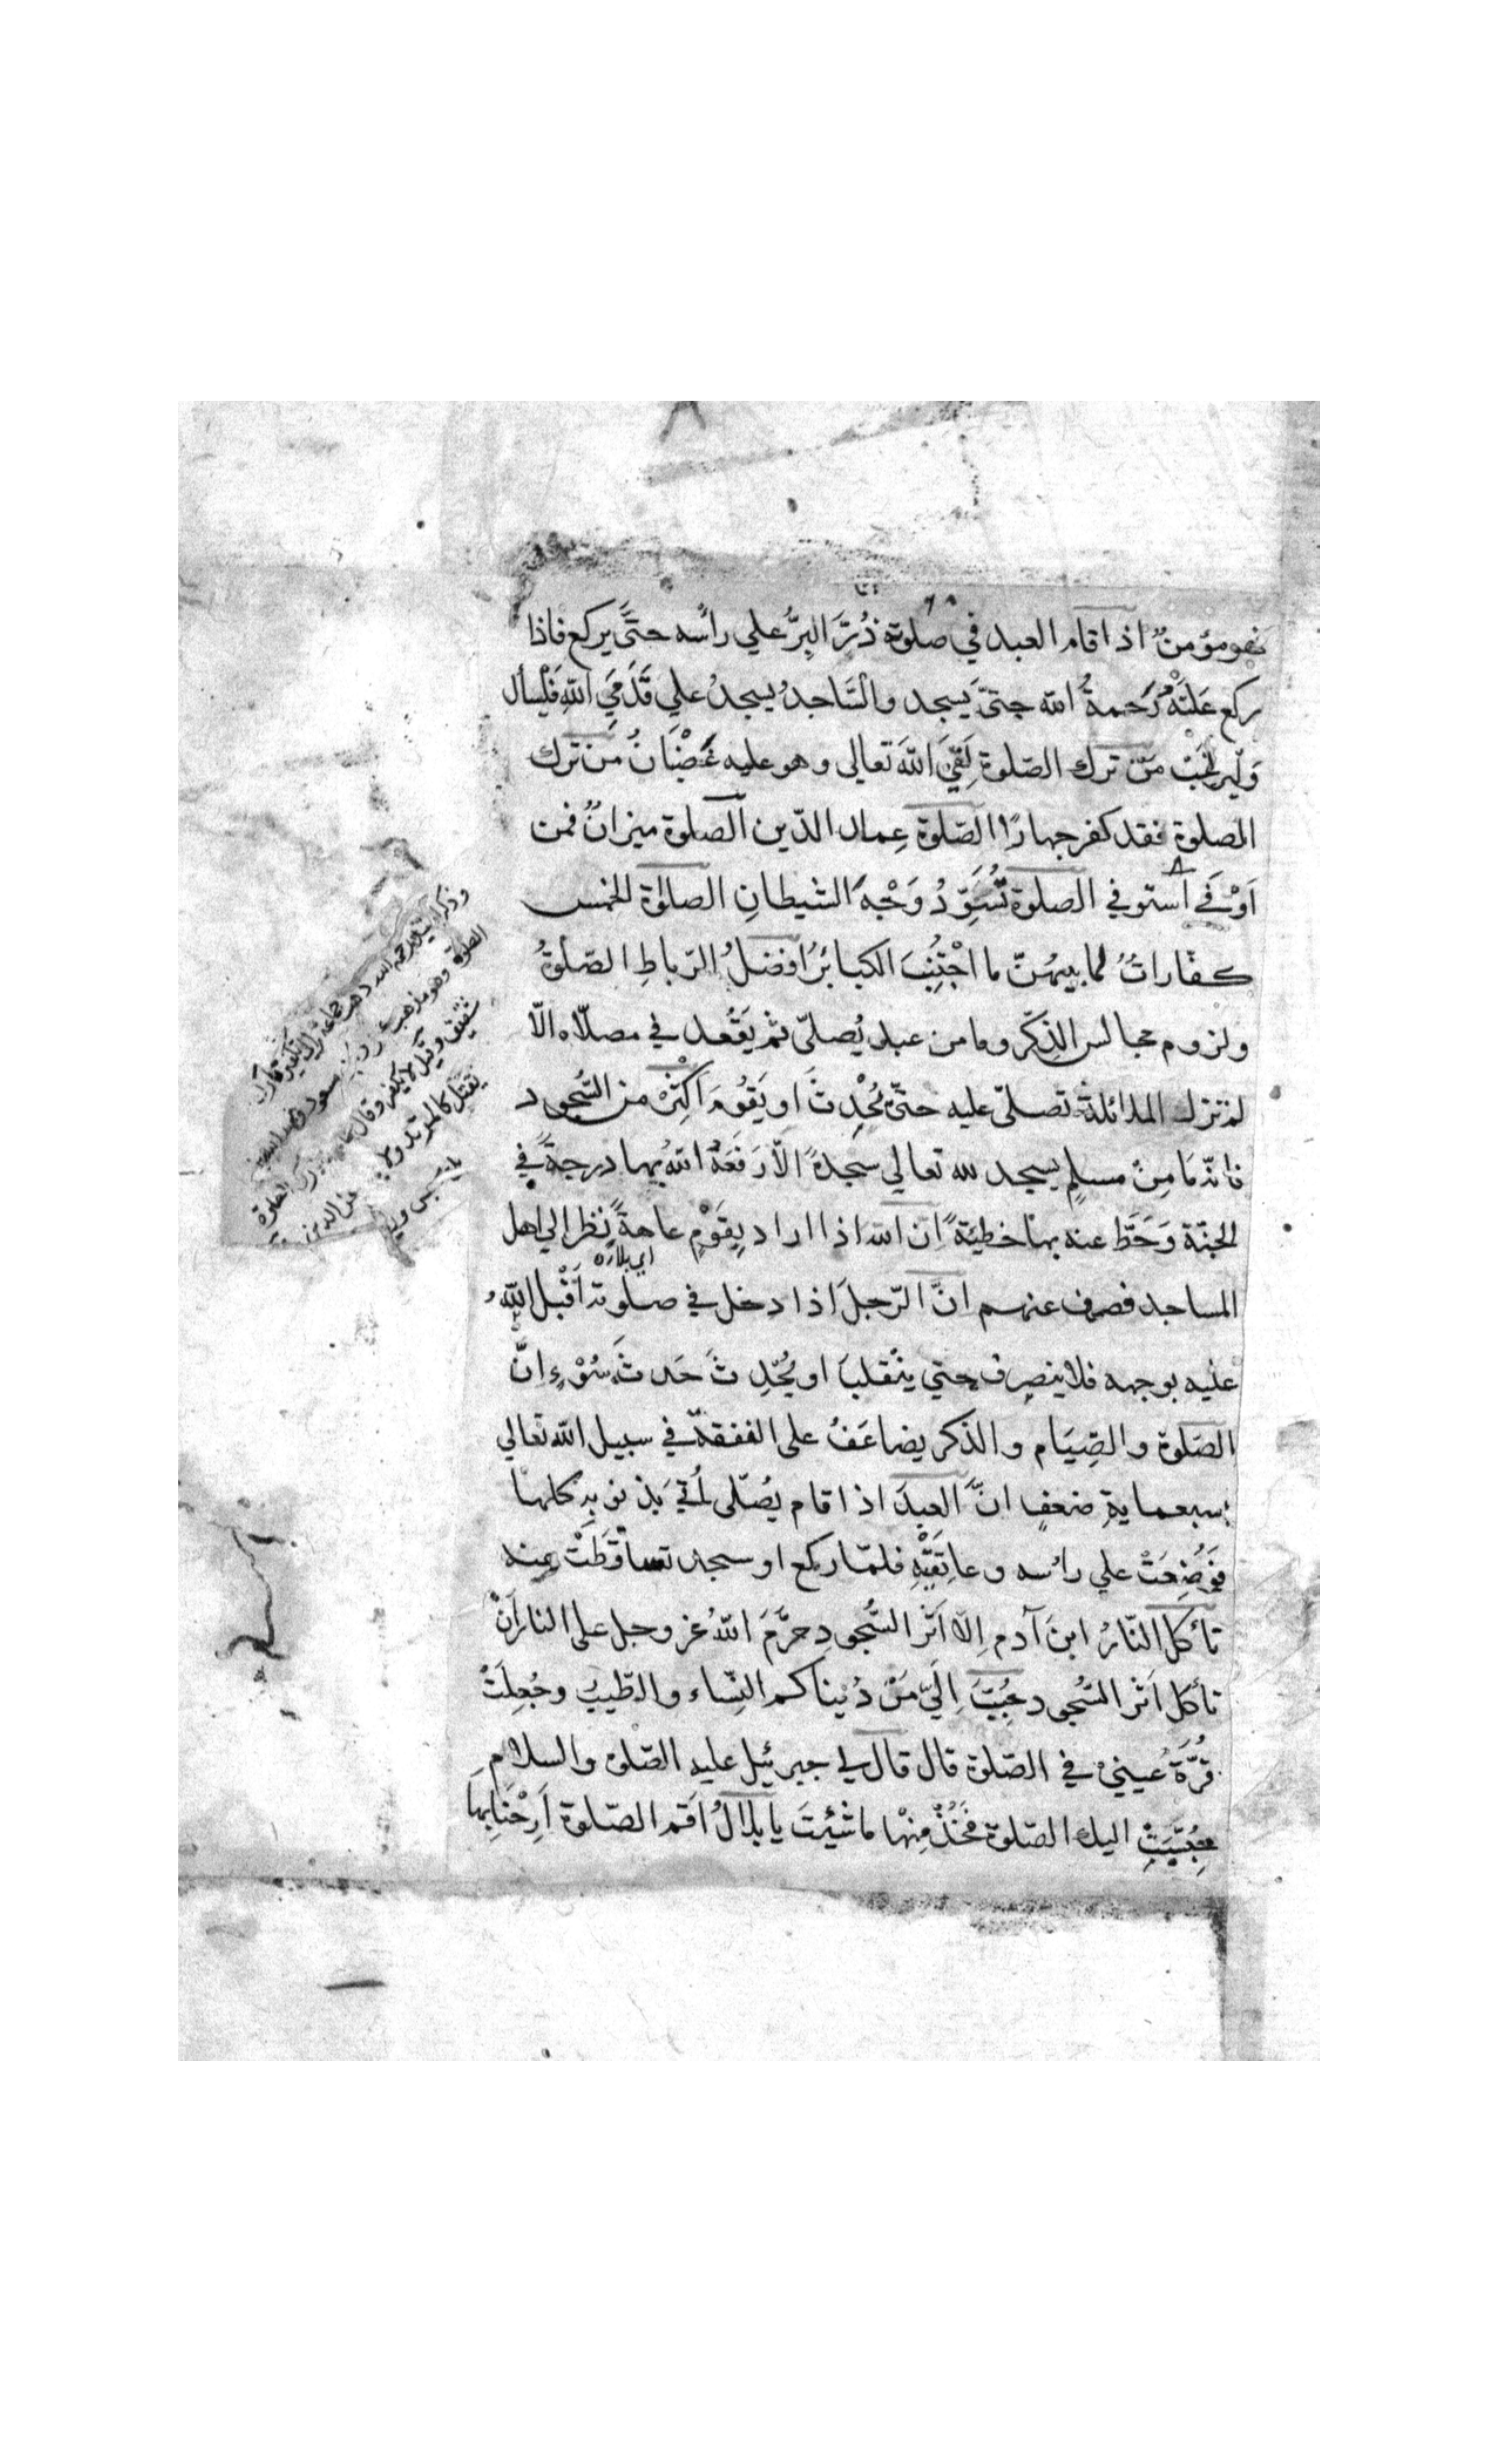 فهو مؤمنٌ اذا قام العبد في صلوة ذُرَّ البِرُّ علي رأسه حتَّي يركع فاذا
ركع عَلَتْهُ رَحمةُ الله حتيّ يَسجد والسَّاجدُ يسجدُ علي قَدَمَي اللهِ فَلْيسأل
وَلْيرغَبْ مَن ترك الصّلوة لَقيَ اللهَ تعالى وهو عليه غَضْبَانُ مَن ترك
الصلوة فقد كفر جهارًا الصّلوة عِماد الدّين الصّلوة ميزانٌ فمن
اَوْفَى استوفي الصلوة تُسَوِّدُ وَجْهَ الشيطانِ الصلوٰة الخمس
كفّاراتٌ لما بينهنّ ما اجْتُنِبَ الكبائرُ افضلُ الرّباطِ الصّلوةُ
ولزوم مجالس الذِّكر وما من عبد يُصلّي ثم يَقْعُد في مصلّاه الّا
لم تزل الملائكة تصلّي عليه حتّي يُحْدِثَ او يَقُومَ اَكثِرْ من السُّجود
فانّه مَا مِنْ مسلمٍ يسجد لله تعالي سجدةً الّا رَفَعَهُ اللهُ بها درجةً في
الجنّة وَحَطَّ عنه بها خطيئةً اِنّ الله اذا اراد بِقَوْمٍ عاهةً نظر الي اهل
اي بلاء
المساجد فصرف عنهم انَّ الرّجلَ اذا دخل في صلوته اَقْبل اللهُ
عليه بوجهه فلا ينصرف حتي ينقلبَ او يُحْدِثَ حَدثَ سُوْءٍ انّ
الصّلوة والصِّيَام والذكر يضاعَفُ على النفقة في سبيل الله تعالي
بسبعماية ضعفٍ انَّ العبدَ اذا قام يُصَلّى اُتيَ بذنوبه كلها
فوُضِعَتْ علي رأسه وعاتِقَيْهِ فلمّا ركع او سجد تساقَطَتْ عنه
تأكل النّارُ ابنَ آدم اِلاّ اَثَر السُّجودِ حرَّمَ اللهُ عز وجل على النار اَنْ
تأكل اَثر السُّجود حُبِّبَ اِلَيَّ مِنْ دُنياكم النِّساء والطّيبُ وجُعِلَتْ
قُرَّةُ عيني في الصّلوة قال قال لي جبرئيل عليه الصّلوة والسلام
حُبِّبَتْ اليك الصّلوة فَخُذْ مِنْها ما شِئْتَ يا بلالُ اَقم الصّلوة اَرِحْنَا بِهَا
الصلوة وهو مذهب
شقيق وقيل لا يكفر وقال
يقتل كالمرتد ولا